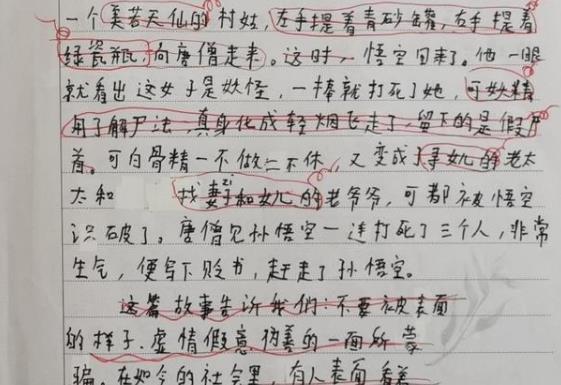 一个美若天仙的村姑，左手提着青砂罐，右手提着
绿瓷瓶，向唐僧走来。这时，悟空回来了。他一眼
就看出这女子是妖怪，一棒就打死了她，可妖精
用了解尸法，真身化成轻烟飞走了，留下的是假尸
首。可白骨精一不做二不休，又变成了寻女儿的老太
太和 找妻zi和女儿的老爷爷，可都被悟空
识破了。唐僧见孙悟空一连打死了三个人，非常
生气，便写下贬书，赶走了孙悟空。
这篇故事告诉我们：不要被表面
的样子、虚情假意伪善的一面所蒙
骗。在如今的社会里，有人表面看着